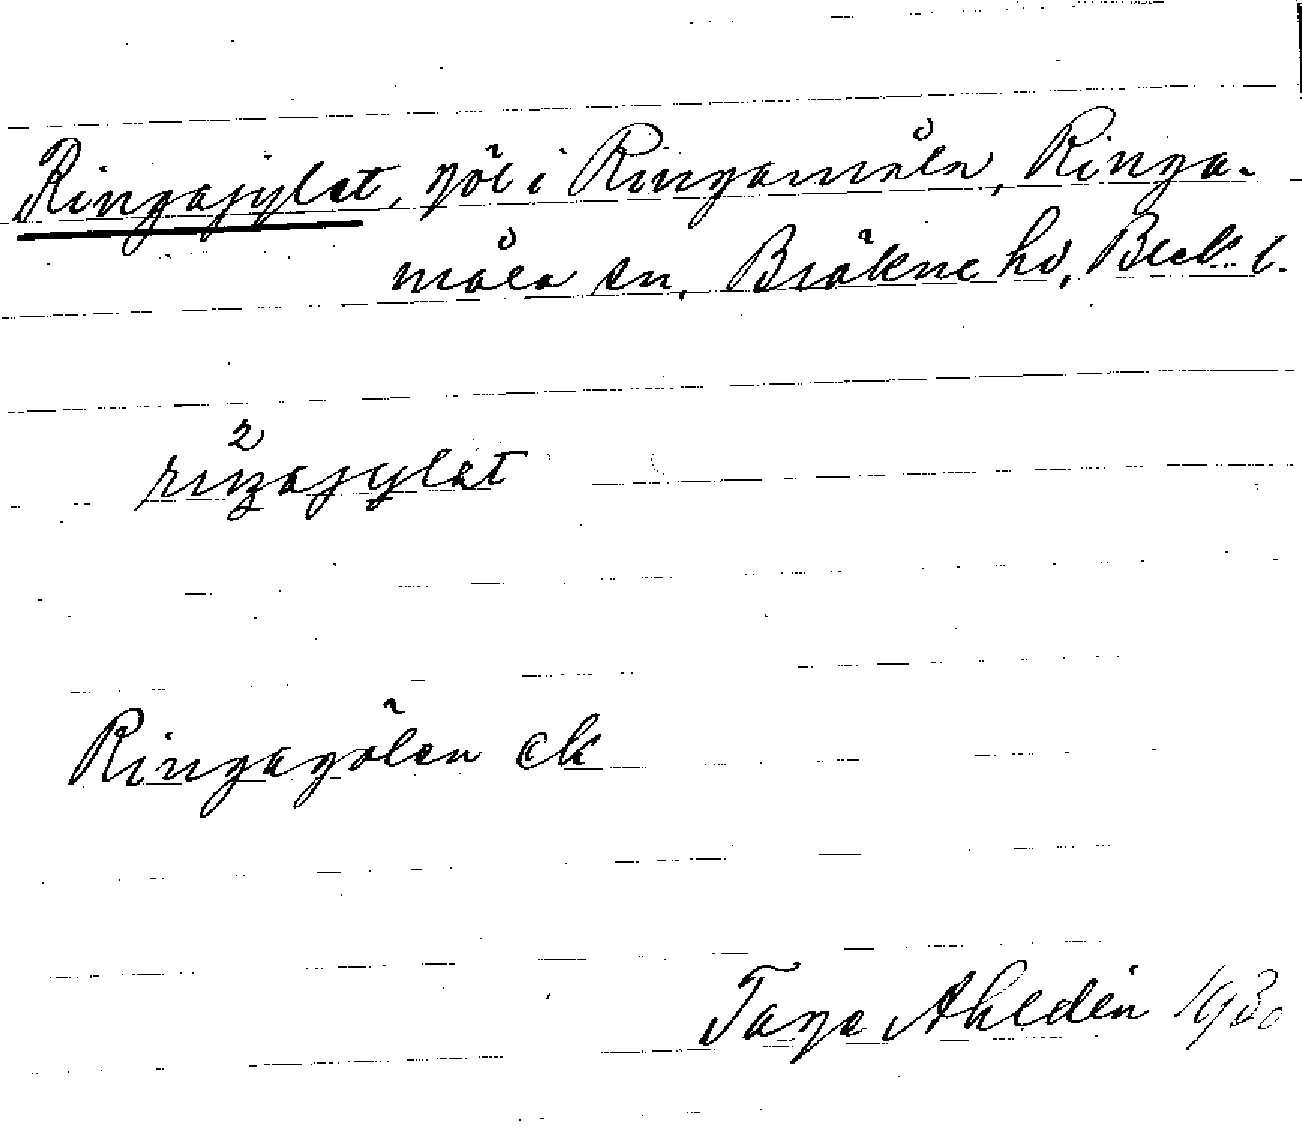 Ringajylet, göl i Ringamåla, Ringa-
måla sn, Bräkne hd, Blek. l.
2
riŋajylet
Ringagölen ek
Tage Ahldén 1930